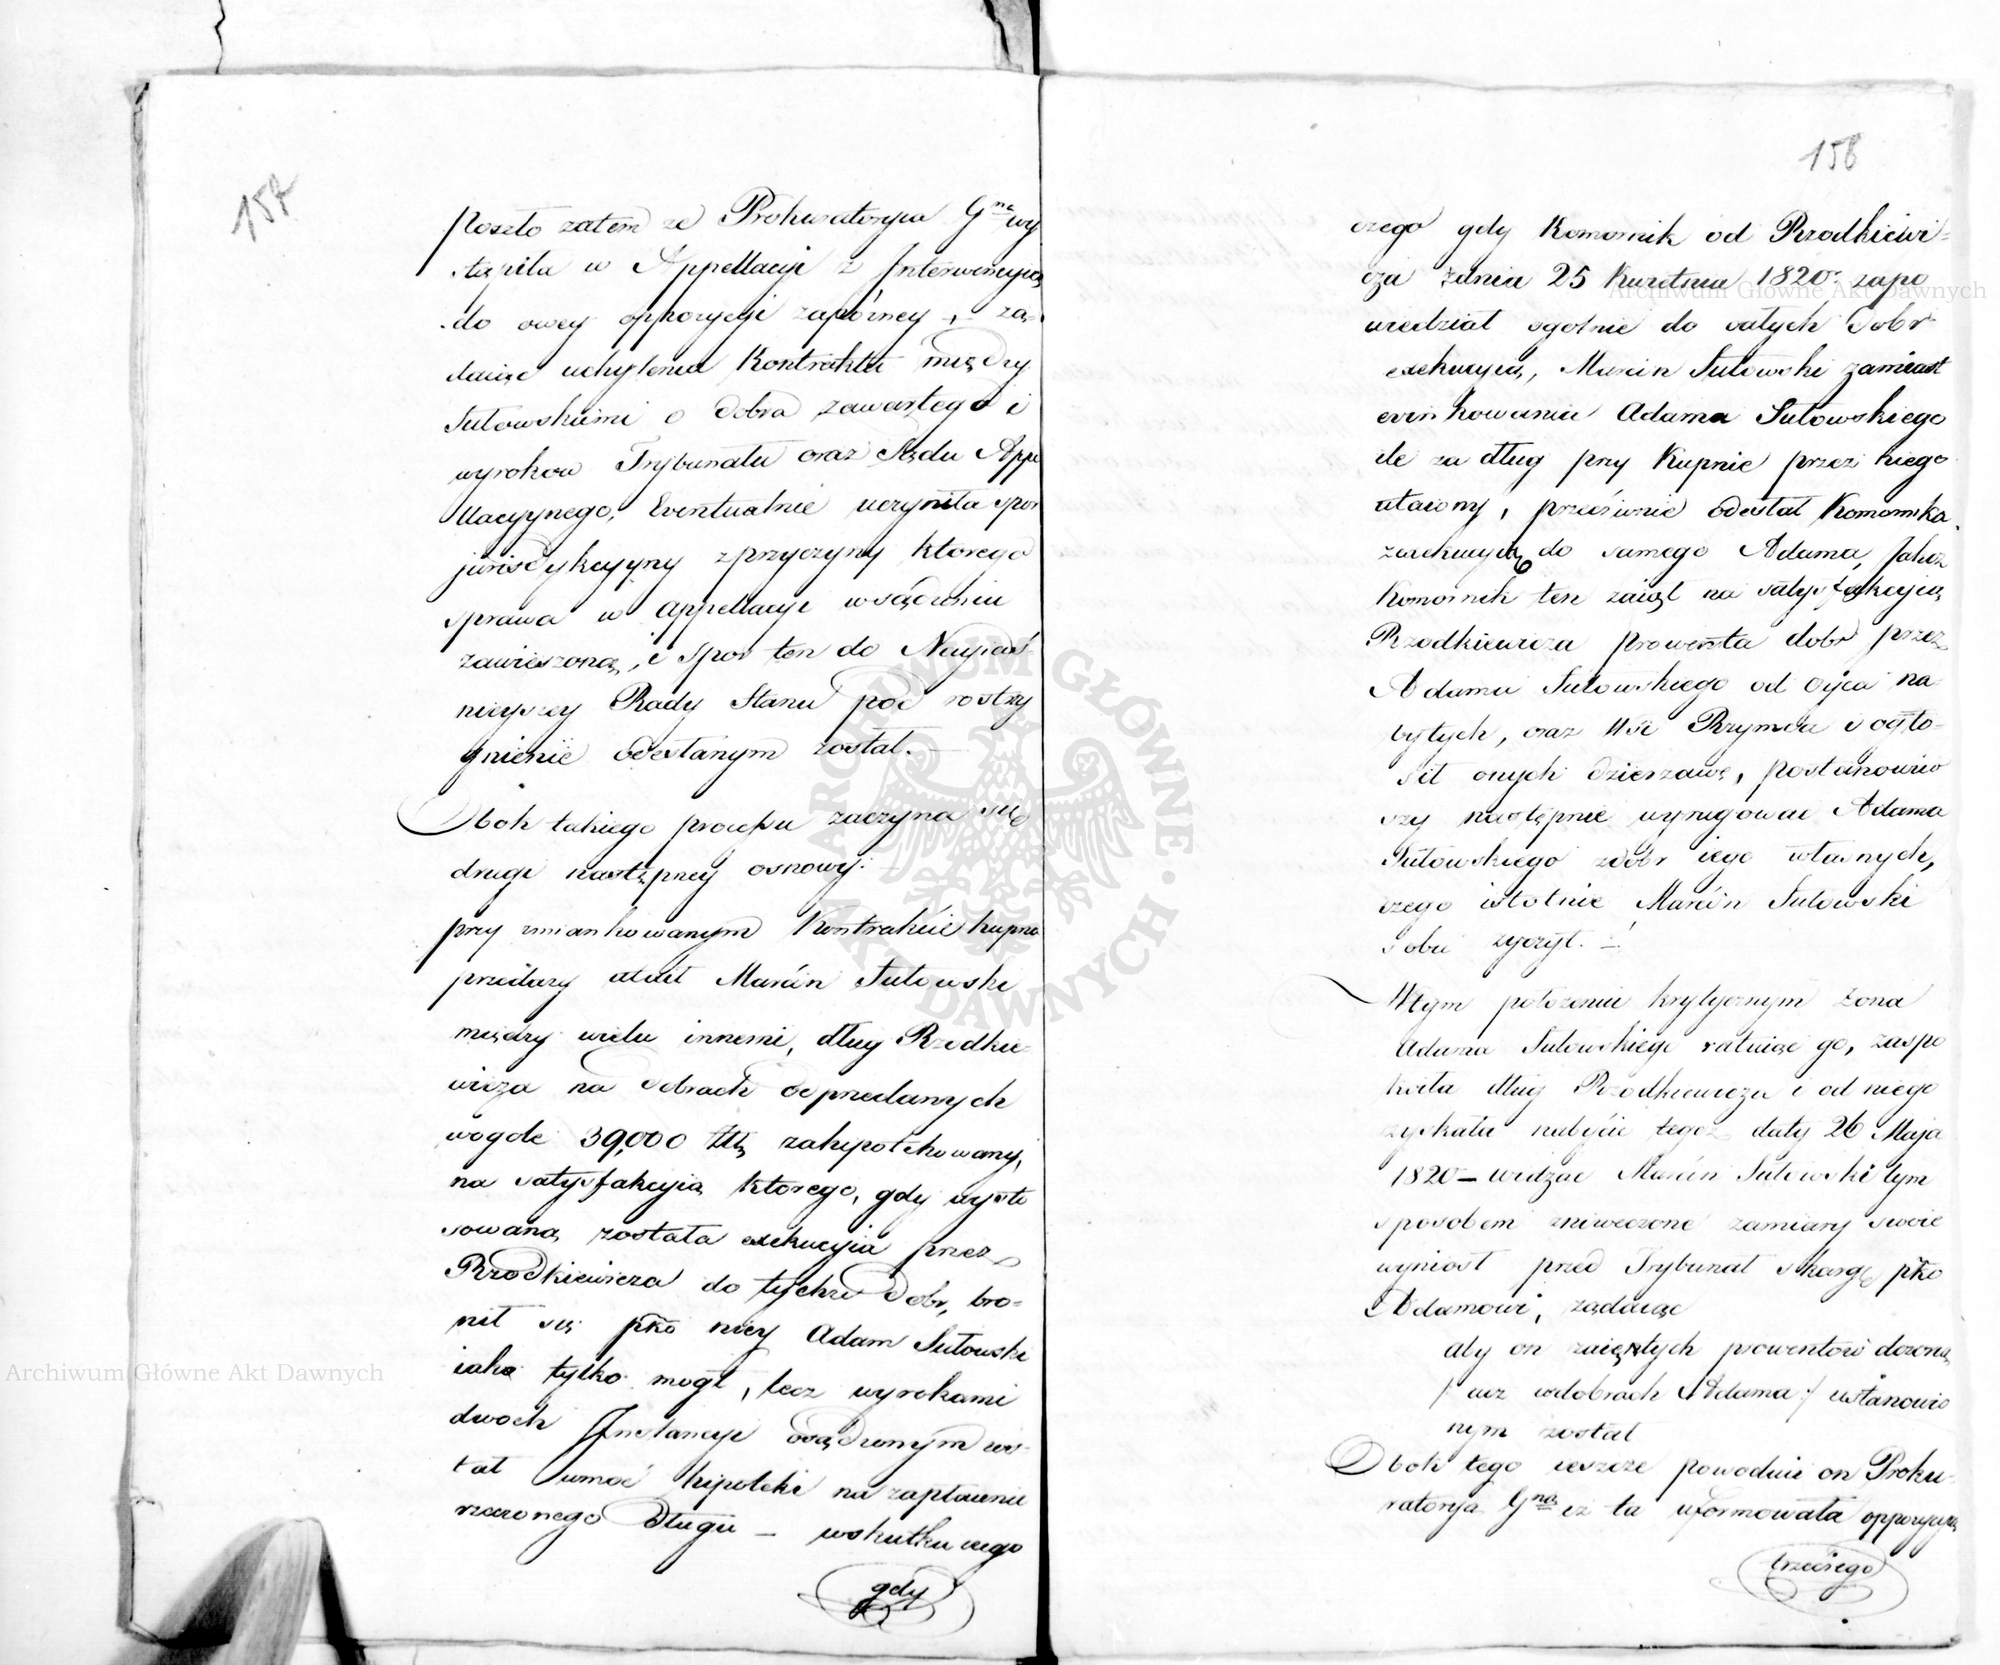 157
poszło zatem ze Prokuratorya Gna wy
stąpiła w Appellacyi z Interwencyią
do owey oppozycyi zapórney, żą-
daiąc uchylenia Kontraktu między
Sułowskiemi o dobra zawartego i
wyroków Trybunału oraz Sądu Appe
llacyynego, Eventualnie uczyniła spor
jurisdykcyyny z przyczyny ktorego
sprawa w appellacyi w sądzeniu
zawieszoną, i spor ten do Nayiaś-
nieyszey Rady Stanu pod rostrzy
gnienie odesłanym został. —
Obok takiego processu zaczyna się
drugi następney osnowy: —
przy zmiankowanym Kontrakcie kupna
przedaży utaił Marcin Sułowski
między wielu innemi, dług Rzodkie
wicza na dobrach odprzedanych
wogole 39,000 Złł zahipotekowany,
na satysfakcyią ktorego, gdy wysto
sowaną została exekucyia przez
Rzodkiewicza do tychże Dobr, bro-
nił się pko niey Adam Sułowski
iako tylko mogł, lecz wyrokami
dwoch Instancyi osądzonym zo-
stał wmoc hipoteki na zapłacenie
rzeczonego Długu — wskutku czego
gdy
158
czego gdy Komornik od Rzodkiewi-
cza zdnia 25 Kwietnia 1820 r. zapo
wiedział ogolnie do całych Dobr
exekucyią, Marcin Sułowski zamiast
ewinkowania Adama Sułowskiego
ile za dług przy Kupnie przez niego
utaiony, przeciwnie odesłał Komornika
zexekucyią do samego Adama, Jakoż
Komornik ten zaiął na satysfakcyią
Rzodkiewicza prowenta dobr przez
Adama Sułowskiego od Oyca na
bytych, oraz Wsi Rzymca i ogło-
sił onych dzierzawę, postanowiw
szy następnie wyrugować Adama
Sułowskiego zdobr iego własnych,
czego istotnie Marcin Sułowski
sobie zyczył. —
Wtym położeniu krytycznym żona
Adama Sułowskiego ratuiąc go, zaspo
koiła dług Rzodkiewicza i od niego
zyskała nabycie tegoż daty 26 Maja
1820 — widząc Marcin Sułowski tym
sposobem zniweczone zamiary swoie
wyniosł przed Trybunał skargę pko
Adamowi, żądaiąc
aby on zaiętych prowentów dozorcą
/: wz wdobrach Adama :/ ustanowio
nym został
Obok tego ieszcze powodzie on Proku-
ratoryą Gną iż ta uformowała oppozycyią
trzeciego
Archiwum Główne Akt Dawnych
Archiwum Główne Akt Dawnych
ARCHIWUM GŁÓWNE AKT DAWNYCH